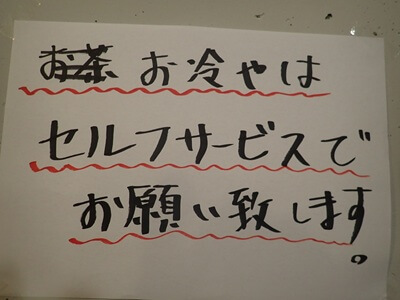 お茶 お冷やは
セルフサービスで
お願い致します。